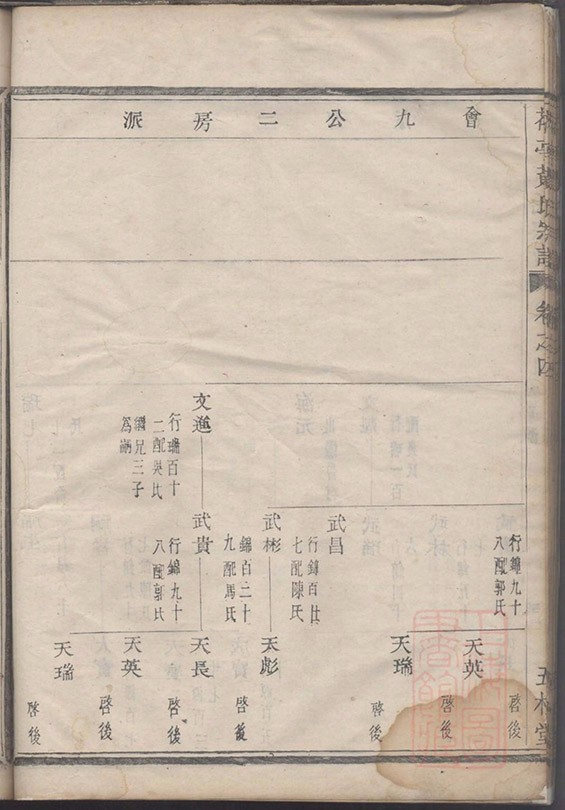 會九公二房派
黃氏宗譜
卷之四
行錦九十
八配郭氏
天英
啓後
啓後
天瑞
啓後
武昌
行錦百廿
七配陳氏
武彬
錦百二十
九配馬氏
天彪
啓後
文進
行璛百十
二配吳氏
繼兄三子
為嗣
武貴
行錦九十
八配郭氏
天長
啓後
天英
啓後
天瑞
啓後